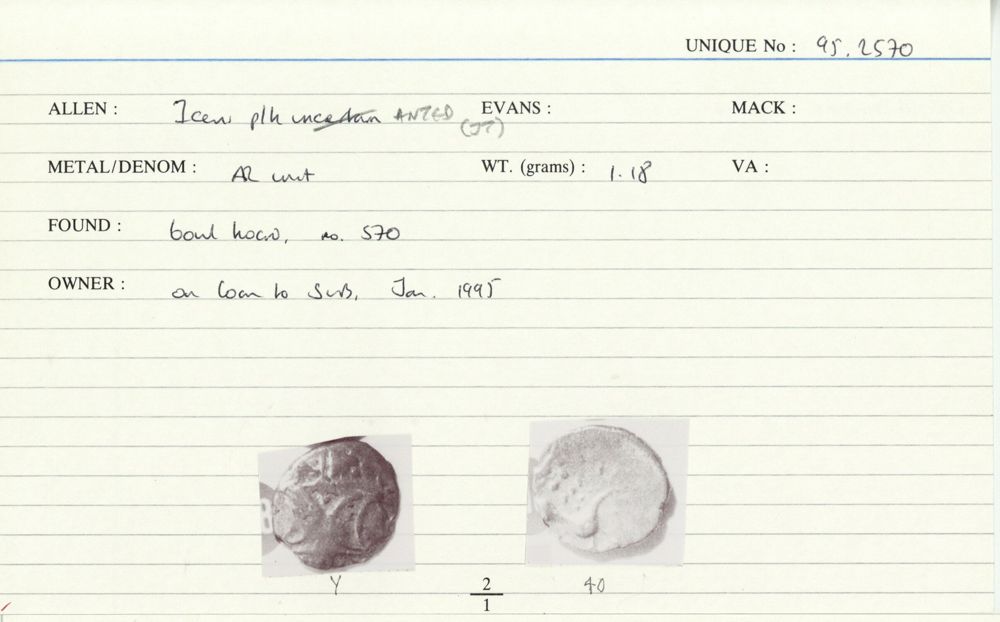 UNIQUE No : 95.2570
ALLEN : Iceni plh uncertain ANTED (JT) EVANS : MACK :
METAL/DENOM : AR unit WT. (grams) : 1.18 VA :
FOUND : bowl hoard, no. 570
OWNER : on loan to SWB, Jan. 1995
B
Y 2/1 40